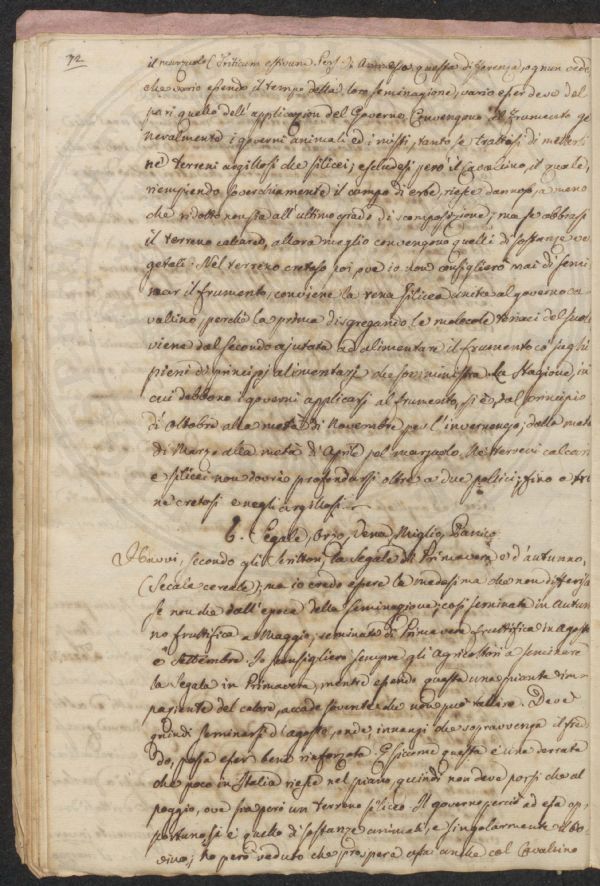 72
il marzuolo (Triticum estivum Pers). Ammessa questa differenza, ognun vede
che vario essendo il tempo della loro seminazione, vario esser deve del
pari quello dell'applicazion del Governo. Convengono al Frumento ge
neralmente i governi animali ed i misti, tanto se trattisi di metterli
ne' terreni argillosi che silicei; escludesi però il Cavallino, il quale,
riempiendo soverchiamente il campo di erbe, riesce dannoso, a meno
che ridotto non sia all'ultimo grado di scomposizione; ma se abbiasi
il terreno calcareo, allora meglio convengono quelli di sostanze ve
getali. Nel terreno cretoso poi, ove io non consiglierò mai di semi
nar il frumento, conviene la rena silicea unita al governo ca
vallino, perchè la prima disgregando le molecole tenaci del suolo
viene dal secondo ajutata ad alimentare il frumento co'
pieni di principj alimentarj che somministra. La Stagione, in
cui debbono i governi applicarsi al frumento, si è, dal principio
di Ottobre alla metà di Novembre pel l'invernengo; dalla metà
di Marzo alla metà di Aprile pel marzuolo. Ne' terreni calcari
e silicei non dovrà profondarsi oltre a due pollici; fino a tre
ne' cretosi e negli argillosi.
6. Segale, Orzo, Vena, Miglio, Panico
Havvi, secondo gli Scrittori, la Segale di Primavera e d'autunno,
(Secale cereale); ma io credo essere la medesima che non differisca
se non che dall'epoca della seminagione; così seminata in Autun
no fruttifica a Maggio; seminata di Primavera fruttifica in Agosto
e Settembre. Io consiglierò sempre gli Agricoltori a seminare
la segala in Primavera, mentre essendo questa una piante im
paziente del calore, accade sovente che non può tallire. Deve
quindi seminarsi d'Agosto, onde innanzi che sopravvenga il fred
do, possa esser bene rinforzata. E siccome questa è una derrata
che poco in Italia riesce nel piano, quindi non deve porsi che al
poggio, ove siavi però un terreno siliceo. Il governo perciò ad essa op
portuno si è quello di sostanze animali, e singolarmente il bo
vino; ho però veduto che prospera essa anche col Cavallino